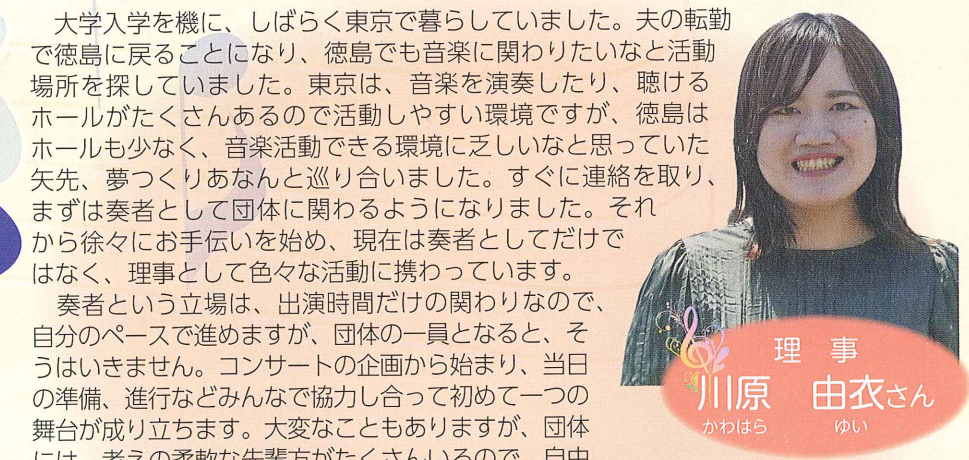 大学入学を機に、しばらく東京で暮らしていました。夫の転勤
で徳島に戻ることになり、徳島でも音楽に関わりたいなと活動
場所を探していました。東京は、音楽を演奏したり、聴ける
ホールがたくさんあるので活動しやすい環境ですが、徳島は
ホールも少なく、音楽活動できる環境に乏しいなと思っていた
矢先、夢つくりあなんと巡り合いました。すぐに連絡を取り、
まずは奏者として団体に関わるようになりました。それ
から徐々にお手伝いを始め、現在は奏者としてだけで
はなく、理事として色々な活動に携わっています。
奏者という立場は、出演時間だけの関わりなので、
自分のペースで進めますが、団体の一員となると、そ
うはいきません。コンサートの企画から始まり、当日
の準備、進行などみんなで協力し合って初めて一つの
舞台が成り立ちます。大変なこともありますが、団体
には、考えの柔軟な先輩方がたくさんいるので、自由
理事
川原 由衣さん
かわはら ゆい